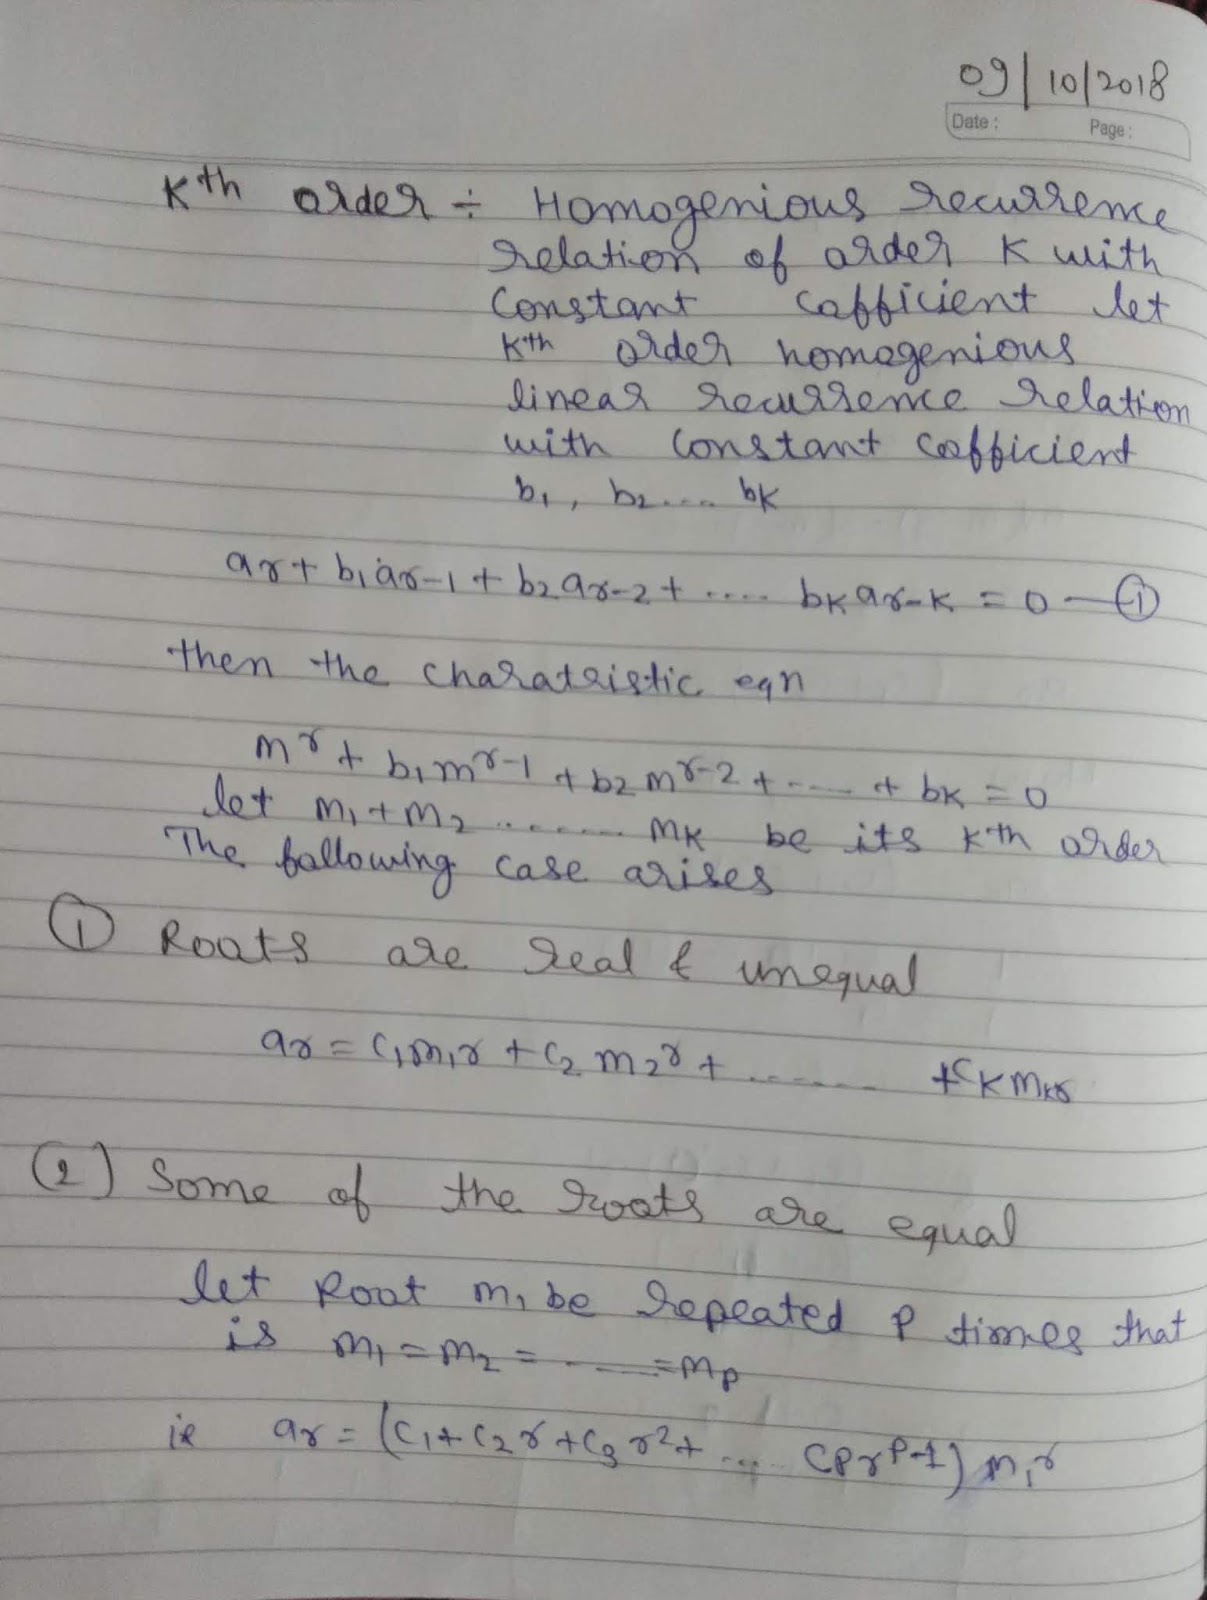 09/10/2018
Date : Page :
Kth order ÷ Homogenious recurrence
relation of order K with
constant cofficient let
Kth order homogenious
linear recurrence relation
with constant cofficient
b1, b2.... bK
ar + b1ar-1 + b2ar-2 + .... bKar-K = 0 — ①
then the charatristic eqn
m^r + b1m^r-1 + b2m^r-2 + ...... + bK = 0
let m1 + m2 ....... mK be its Kth order
The following case arises
① Roots are real & unequal
ar = C1m1r + C2m2^r + ....... + CKmKr
(2) Some of the roots are equal
let Root m1 be repeated P times that
is m1 = m2 = ...... = mP
ie ar = (C1 + C2r + C3r² + .... CPr^P-1) m1^r